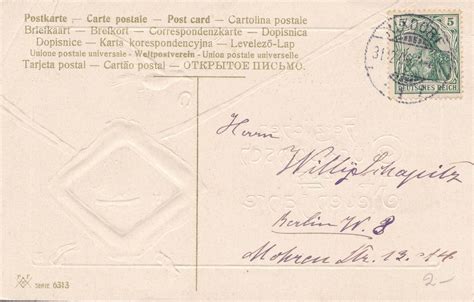 Postkarte - Carte postale - Post card - Cartolina postale
Briefkaart - Brefkort - Correspondenzkarte - Dopisnica
Dopisnice - Karta korespondencyjna - Levelező-Lap
Unione postale universale - Weltpostverein - Union postale universelle
Tarjeta postal - Cartão postal - ОТКРЫТОЕ ПИСЬМО.
5
DEUTSCHES REICH
31
Herrn
Willy
Berlin W. 8
Mohren Str. 13-14
2-
SERIE 6313